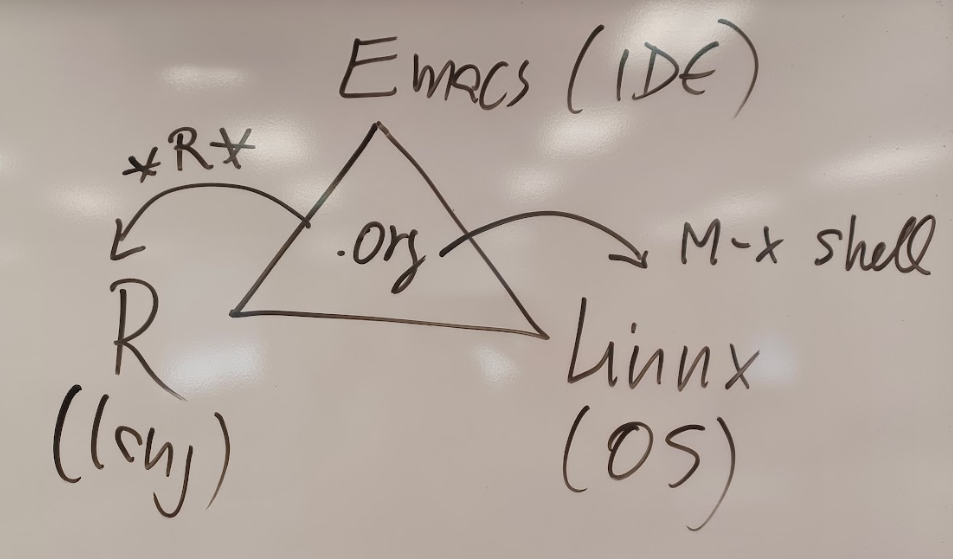 Emacs (IDE)
*R*
.org
M-x shell
R
Linux
(lang)
(OS)